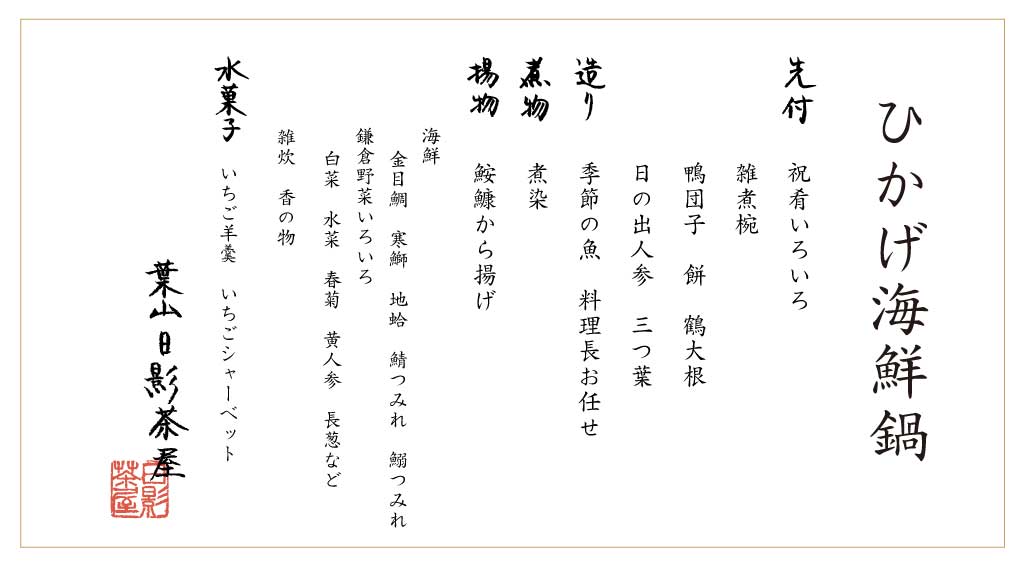 ひかげ海鮮鍋
先付　祝肴いろいろ
雑煮椀
鴨団子　餅　鶴大根
日の出人参　三つ葉
造り　季節の魚　料理長お任せ
煮物　煮染
揚物　鮟鱇から揚げ
海鮮
金目鯛　寒鰤　地蛤　鯖つみれ　鰯つみれ
鎌倉野菜いろいろ
白菜　水菜　春菊　黄人参　長葱など
雑炊　香の物
水菓子　いちご羊羹　いちごシャーベット
葉山日影茶屋
日影茶屋